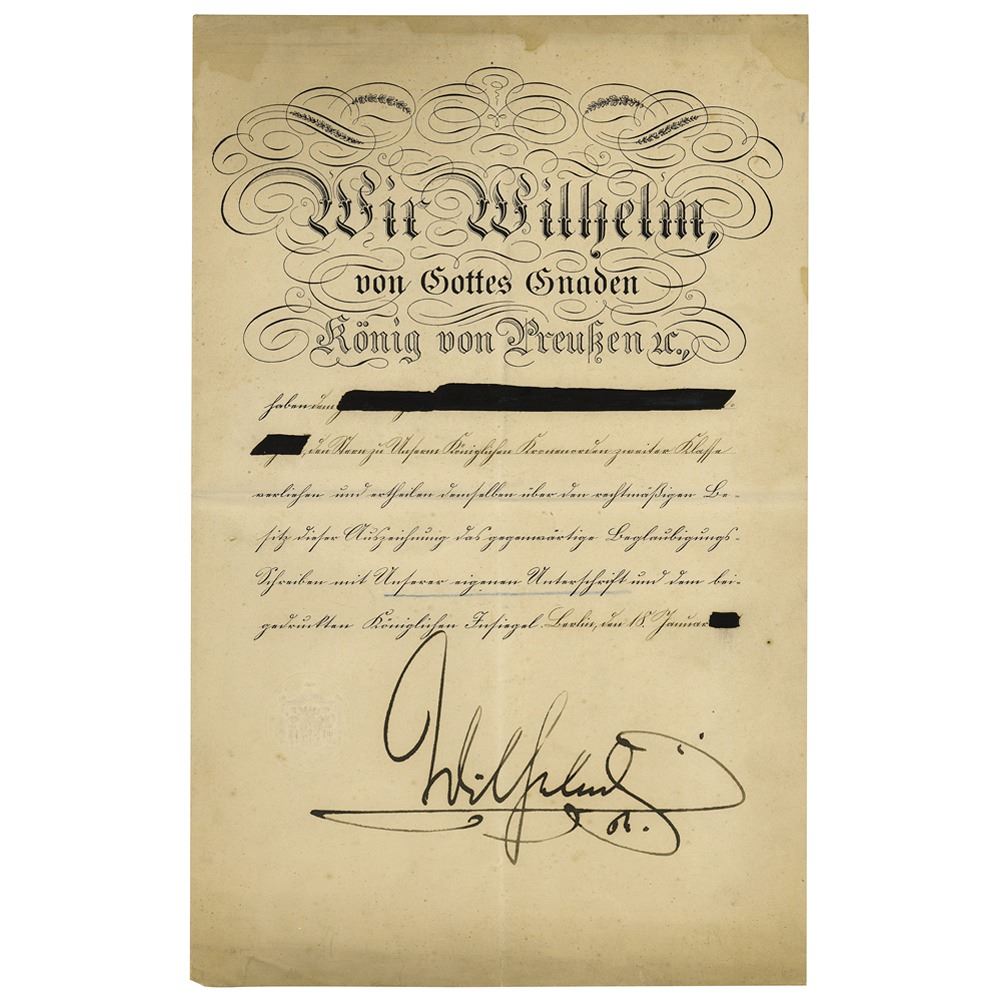 Wir Wilhelm,
von Gottes Gnaden
König von Preußen ꝛc.,
haben dem
, den Stern zu Unserm Königlichen Kronenorden zweiter Klasse
verliehen und ertheilen demselben über den rechtmäßigen Be-
sitz dieser Auszeichnung das gegenwärtige Beglaubigungs-
Schreiben mit Unserer eigenen Unterschrift und dem bei-
gedruckten Königlichen Insiegel. Berlin, den 18. Januar
Wilhelm
R.